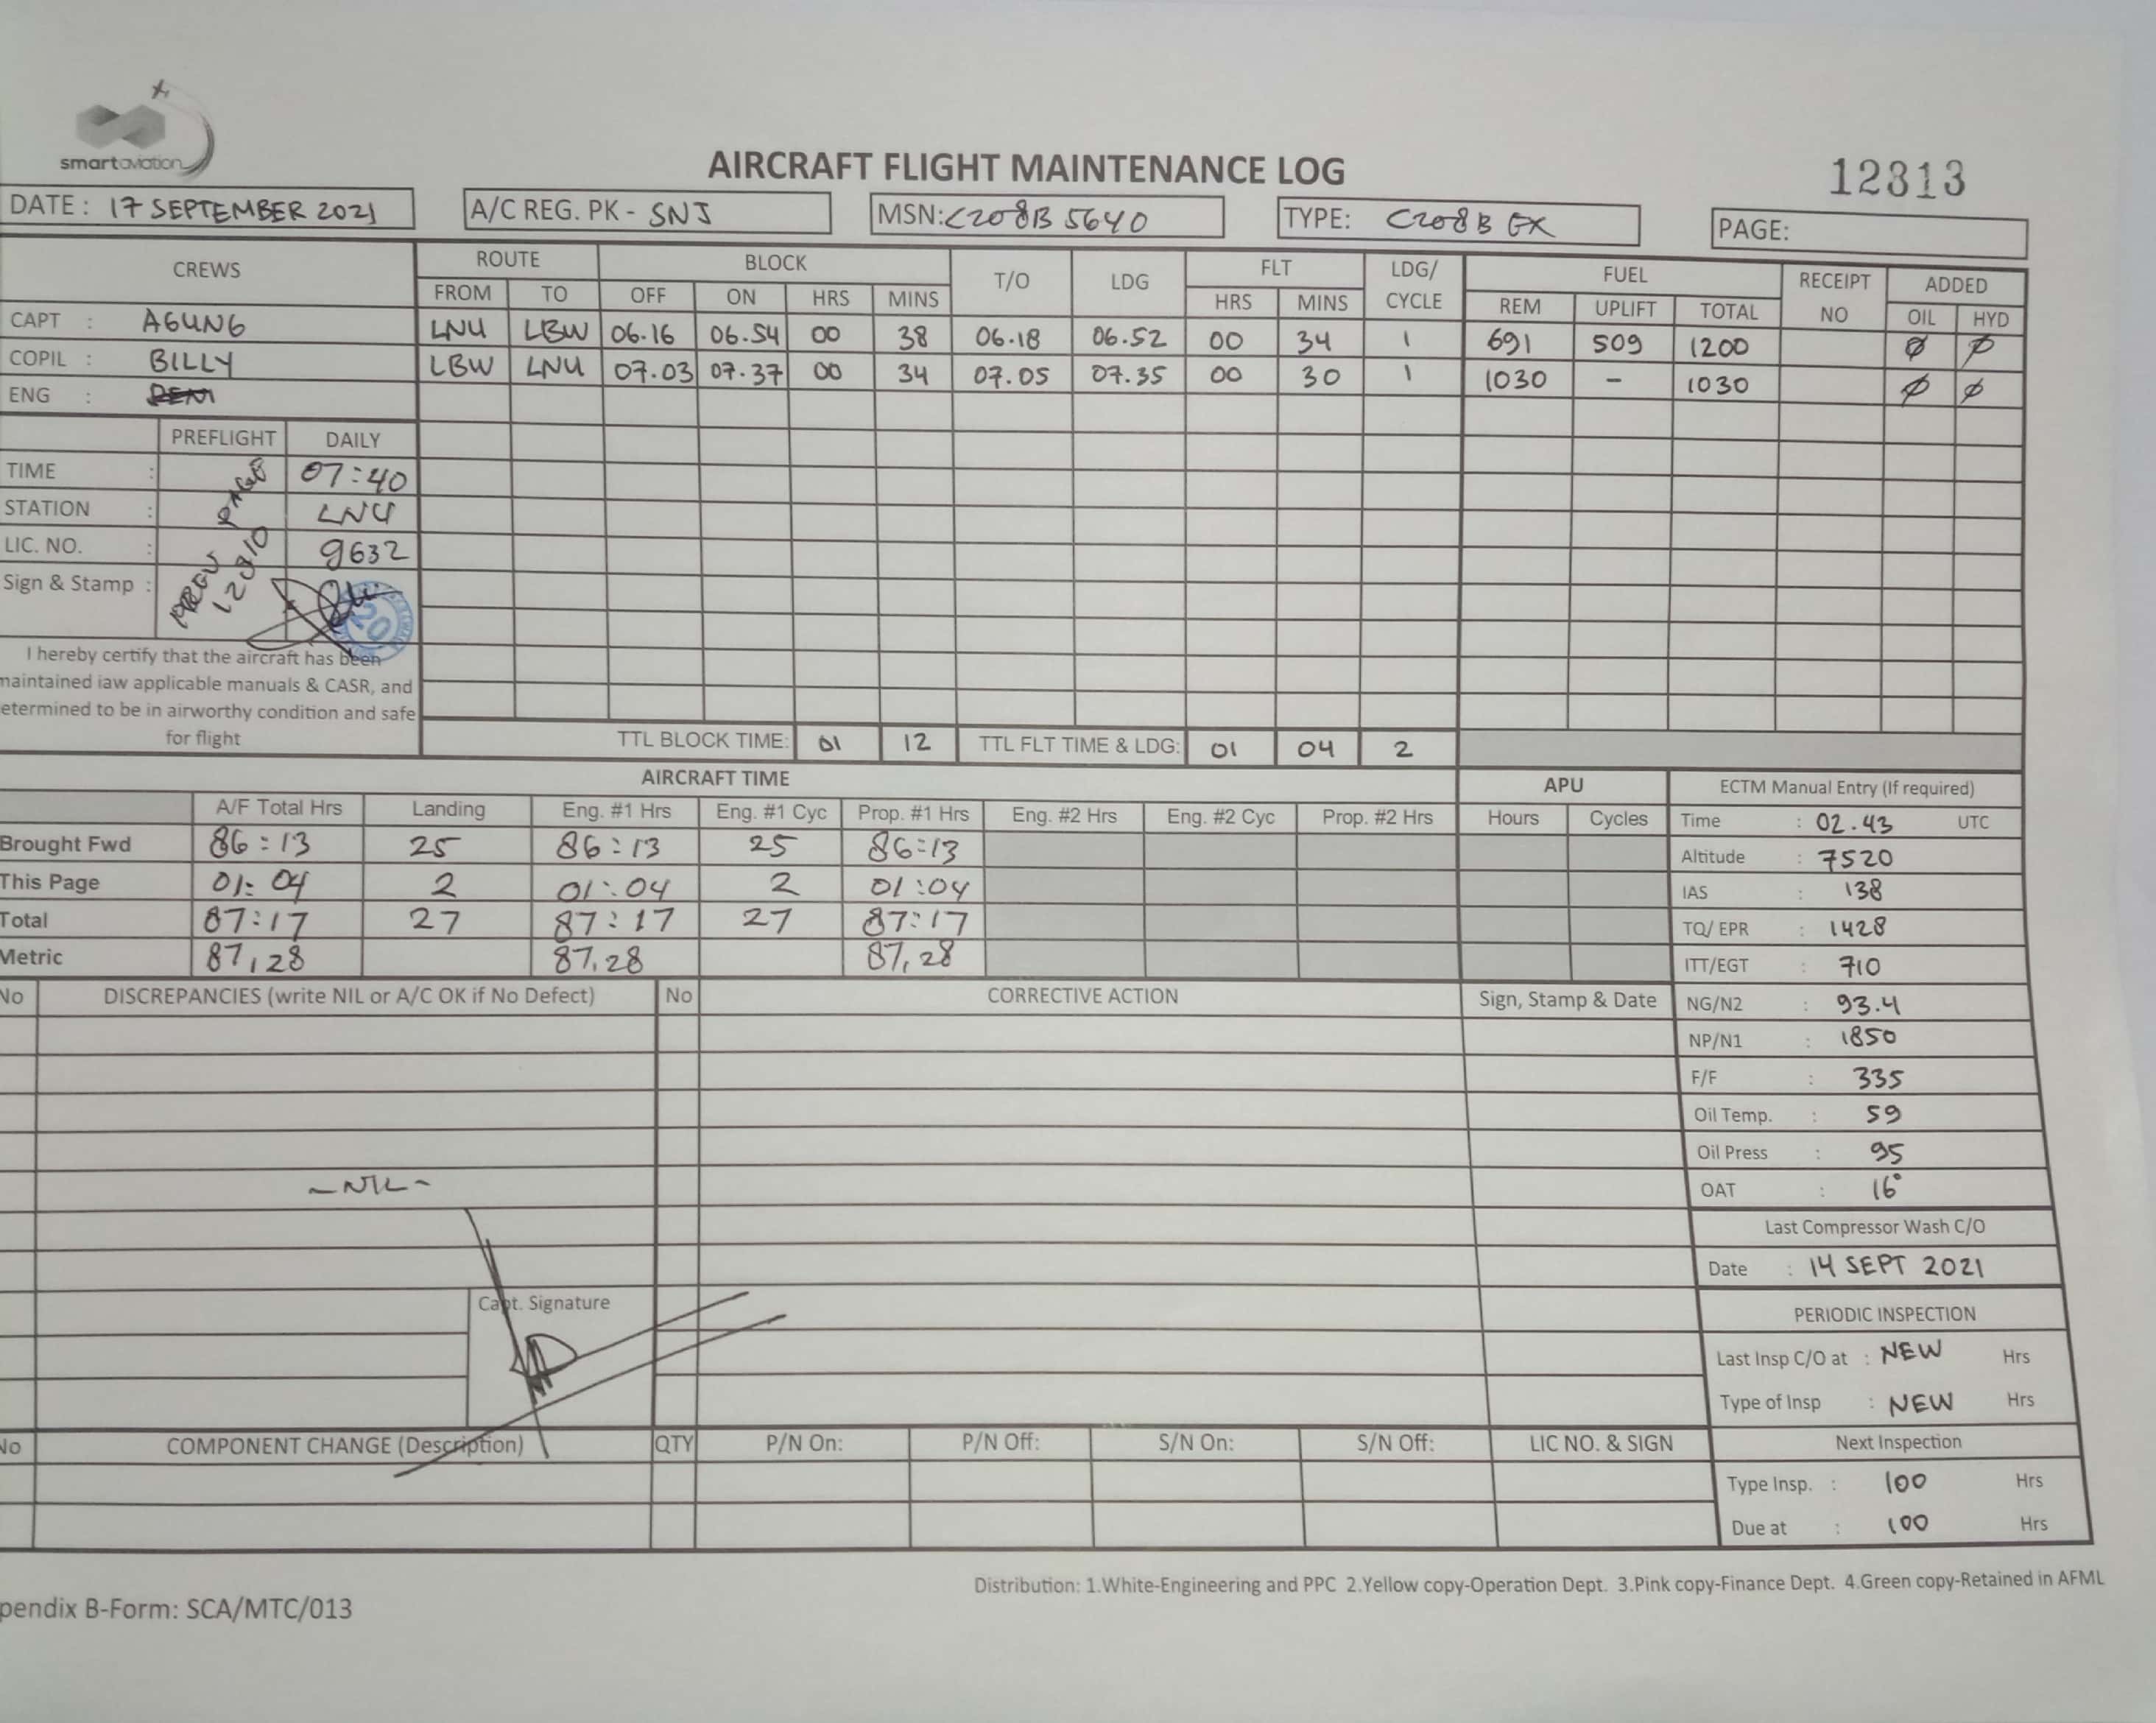 smartaviation
AIRCRAFT FLIGHT MAINTENANCE LOG
12313
DATE: 17 SEPTEMBER 2021
A/C REG. PK - SNJ
MSN: C208B 5640
TYPE: C208B EX
PAGE:
CREWS ROUTE BLOCK T/O LDG FLT LDG/ CYCLE FUEL RECEIPT NO ADDED
FROM TO OFF ON HRS MINS HRS MINS REM UPLIFT TOTAL OIL HYD
CAPT : AGUNG
LNU LBW 06.16 06.54 00 38 06.18 06.52 00 34 1 691 509 1200 Ø Ø
COPIL : BILLY
LBW LNU 07.03 07.37 00 34 07.05 07.35 00 30 1 1030 - 1030 Ø Ø
ENG :
PREFLIGHT DAILY
TIME : 07:40
STATION : LNU
LIC. NO. : 9632
Sign & Stamp :
PAGE
20
I hereby certify that the aircraft has been
maintained iaw applicable manuals & CASR, and
etermined to be in airworthy condition and safe
for flight
TTL BLOCK TIME: 01 12 TTL FLT TIME & LDG: 01 04 2
AIRCRAFT TIME APU ECTM Manual Entry (If required)
A/F Total Hrs Landing Eng. #1 Hrs Eng. #1 Cyc Prop. #1 Hrs Eng. #2 Hrs Eng. #2 Cyc Prop. #2 Hrs Hours Cycles
Brought Fwd 86:13 25 86:13 25 86:13
This Page 01:04 2 01:04 2 01:04
Total 87:17 27 87:17 27 87:17
Metric 87,28 87,28 87,28
Time : 02.43 UTC
Altitude : 7520
IAS : 138
TQ/ EPR : 1428
ITT/EGT : 710
NG/N2 : 93.4
NP/N1 : 1850
F/F : 335
Oil Temp. : 59
Oil Press : 95
OAT : 16°
No DISCREPANCIES (write NIL or A/C OK if No Defect) No CORRECTIVE ACTION Sign, Stamp & Date
- NIL -
Capt. Signature
Last Compressor Wash C/O
Date : 14 SEPT 2021
PERIODIC INSPECTION
Last Insp C/O at : NEW Hrs
Type of Insp : NEW Hrs
Next Inspection
Type Insp. : 100 Hrs
Due at : 100 Hrs
No COMPONENT CHANGE (Description) QTY P/N On: P/N Off: S/N On: S/N Off: LIC NO. & SIGN
Distribution: 1.White-Engineering and PPC 2.Yellow copy-Operation Dept. 3.Pink copy-Finance Dept. 4.Green copy-Retained in AFML
pendix B-Form: SCA/MTC/013